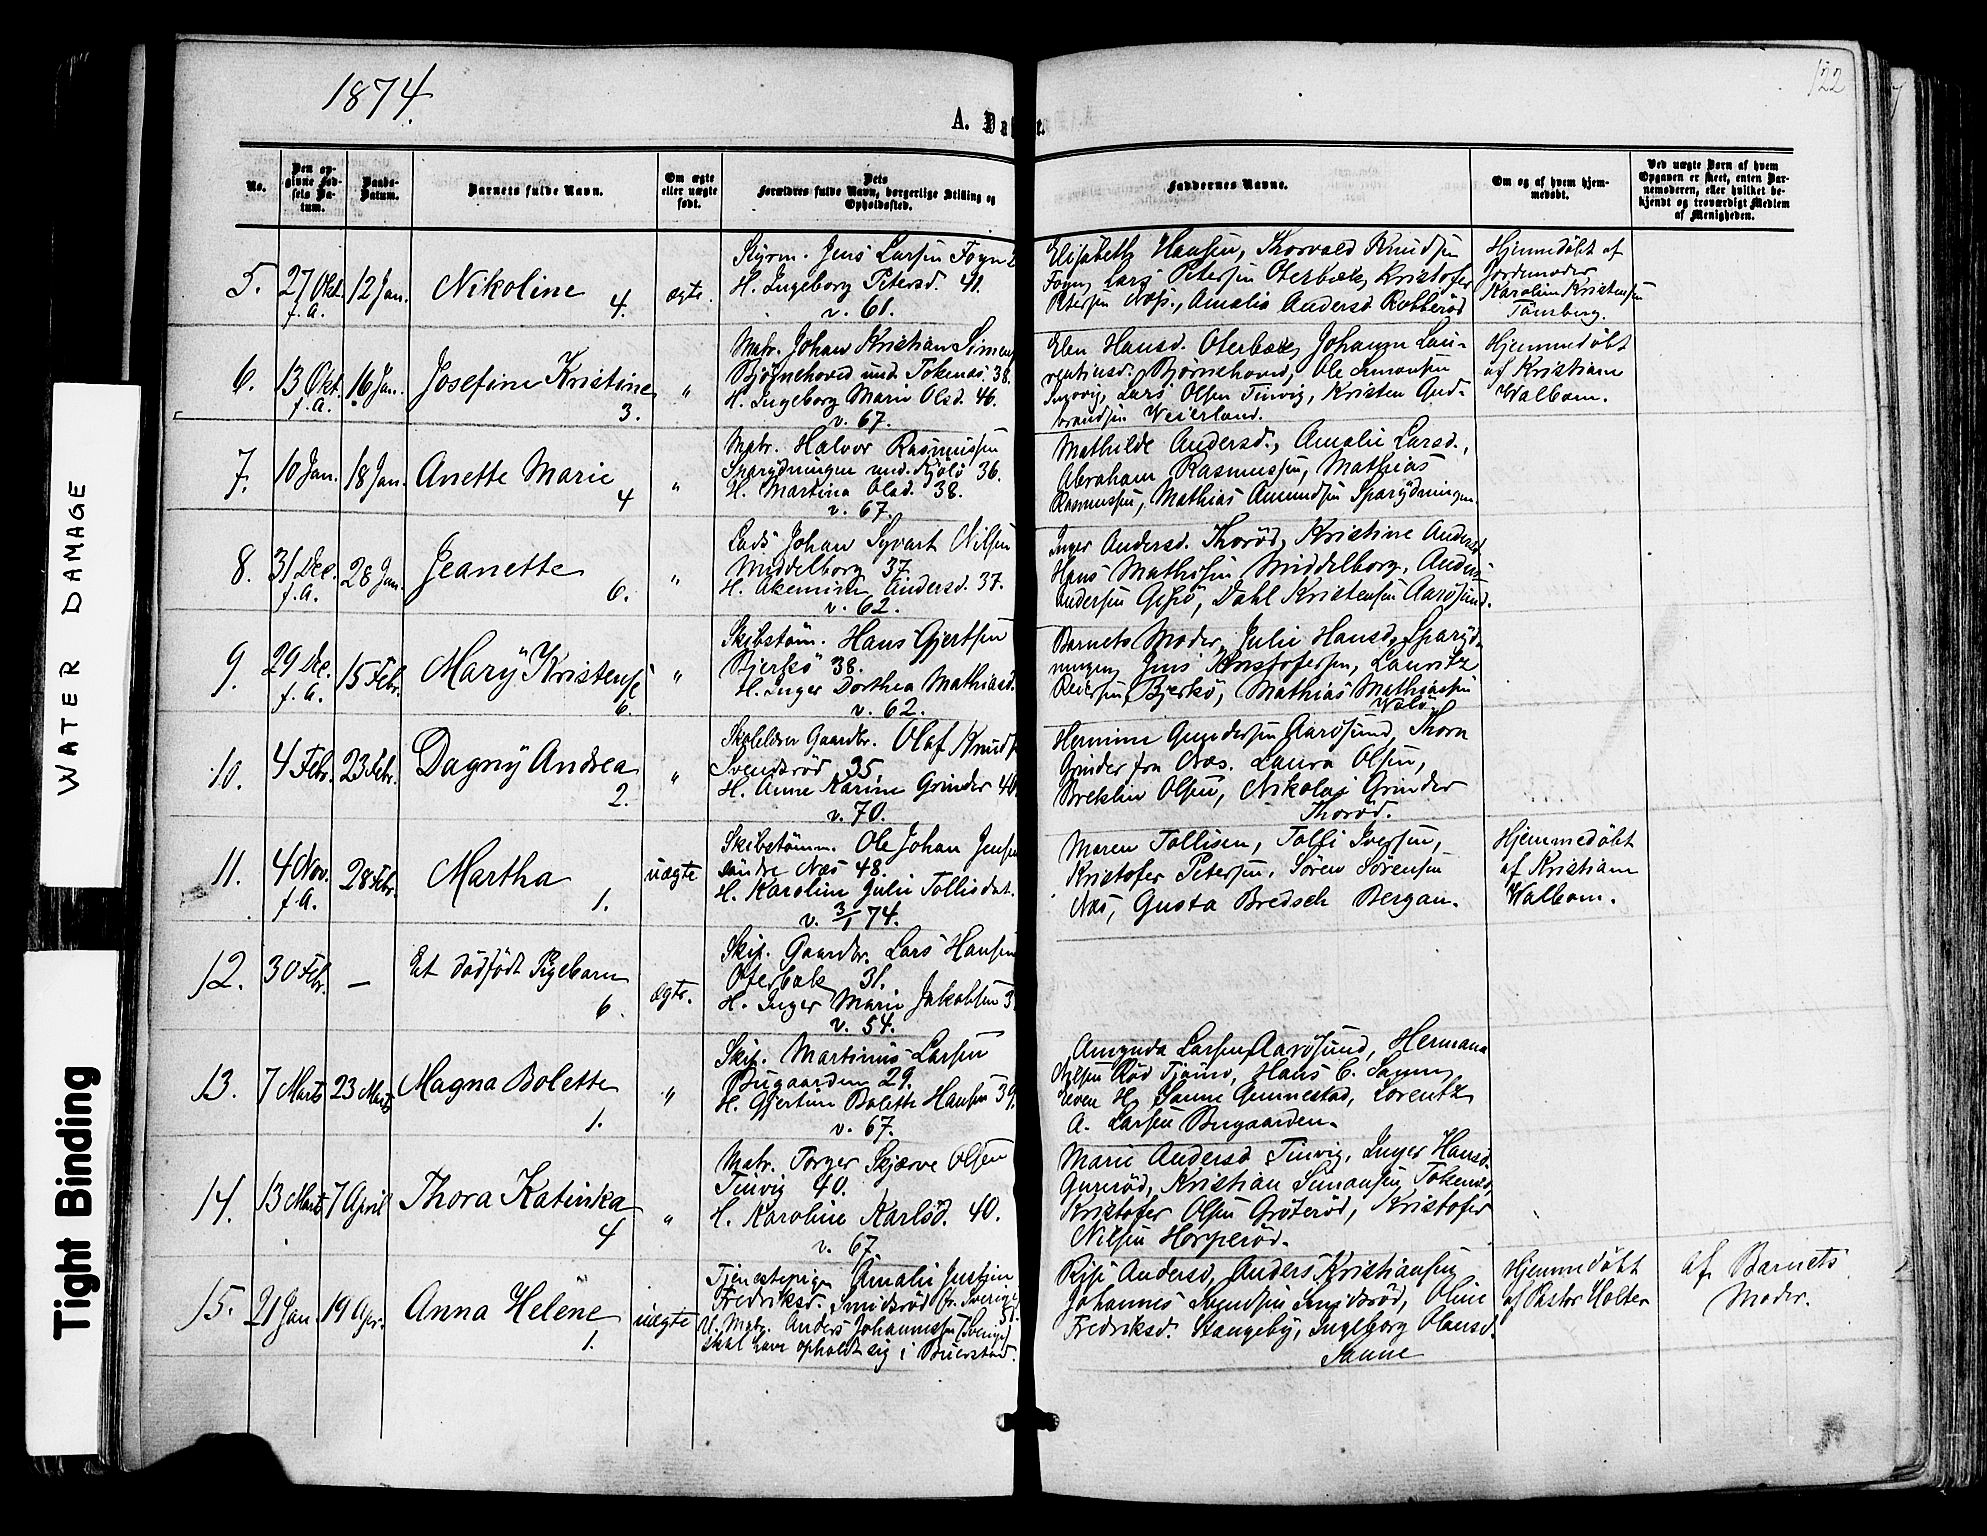 WATER DAMAGE
Tight Binding
1874.
122
No.
Den opgivne Fødsels Datum.
Daabs-Datum.
Barnets fulde Navn.
Om ægte eller uægte født.
Dets Forældres fulde Navn, borgerlige Stilling og Opholdssted.
Faddernes Navne.
Om og af hvem hjemmedøbt.
Ved uægte Børn af hvem
Opgaven er skeet, enten Barnemoderen, eller hvilket bekjendt og troværdigt Medlem
af Menigheden.
5. 27 Okt. f. A. 12 Jan. Nikoline 4. ægte.
Styrm. Jens Larsen Foyn
H. Ingeborg Petersd. 41.
v. 61.
Elisabeth Hansen, Thorvald Knudsen
Foyn, Lars Petersen Oterbæk, Kristofer
Petersen Næs., Amalia Andersd
Hjemmedøbt af
Jordemoder
Karoline Kristensen
Tønsberg.
6. 13 Okt. f. A. 16 Jan. Josefine Kristine 3. "
Matr. Johan Kristian
Bjørnehoved und. Tokenæs. 38.
H. Ingeborg Marie Olsd. 46.
v. 67.
Elen Hansd. Oterbæk, Johanne Lau-
rentiusd. Bjørnehoved, Ole Simonsen
Lars Olsen Tinvig, Kristen Gud-
brandsen Veierland.
Hjemmedøbt
af Kristiane
Walbom.
7. 10 Jan. 18 Jan. Anette Marie 4 "
Matr. Halvor Rasmussen
und. 36.
H. Martina Olsd. 38.
v. 67.
Mathilde Andersd., Amalie Larsd.,
Abraham Rasmussen, Mathias
Rasmussen, Mathias Amundsen
8. 31 Dec. f. A. 28 Jan. Jeanette 6. "
Lods Johan Syvart Nilsen
Middelborg 37.
H. Andersd. 37.
v. 62.
Inger Andersd. Thorød, Kristine Andersd.
Hans Mathisen Middelborg, Anders
Andersen, Dahl Kristensen Aarøsund.
9. 29 Dec. f. A. 15 Febr. Mary 6. "
Skibstøm. Hans Gjertsen
Bjerkø 38.
H. Inger Dorthea Mathiasd.
v. 62.
Barnets Moder, Julie Hansd.
Jens Kristofersen, Lauritz
Reiersen Bjerkø, Mathias Mathiassen
10. 4 Febr. 23 Febr. Dagny Andrea 2. "
Gaardbr. Olaf
Svendsrød 35.
H. Anne Karine Grinder 40.
v. 70.
Hermine Gundersen Aarøsund, Thora
Grinder fra Næs. Laura Olsen,
Olsen, Nikolai Grinder
Thorød.
11. 4 Nov. f. A. 28 Febr. Martha 1. uægte
Skibstømm. Ole Johan Jensen
søndre Næs 48.
H. Karoline Julie Tollisdat.
v. 3/1 74.
Maren Tollisen, Tolli Iversen,
Kristofer Petersen, Søren Sørensen
Næs, Gusta Bredsch Bergan.
Hjemmedøbt
af Kristiane
Walbom.
12. 30 Febr. — Et dødfødt Pigebarn 6. ægte.
Skip. Gaardbr. Lars Hansen
Oterbæk 31.
H. Inger Marie Jakobsen
v. 54.
13. 7 Marts 23 Marts Magna Bolette 1. "
Skip. Martinius Larsen
Bugaarden 29.
H. Gjertine Bolette Hansen 39.
v. 67.
Amynda Larsen Aarøsund, Hermana
Nilsen Rød Tjømø, Hans C. Sanne,
Even H. Sanne Gunnestad, Lorentz
A. Larsen Bugaarden.
14. 13 Marts 7 April Thora Katinka 4 "
Matr. Torger Skjærve Olsen
Tinvig 40.
H. Karoline Karlsd. 40.
v. 67.
Marie Andersd Tinvig, Inger Hansd.
Kristian Simonsen, Tokenæs,
Kristofer Olsen Grøterød, Kristofer
Nilsen Horperød.
15. 21 Jan. 19 Apr. Anna Helene 1. uægte
Tjenestepige Amalie
Fredriksd. Smidsrød fr. Sverige
U. Matr. Anders Johannessen (Sverige)
skal have opholdt sig i
Andersd, Anders Kristiansen
Johannes Svendsen Smidsrød, Oline
Fredriksd. Stangeby, Ingeborg Olausd.
Sanne
Hjemmedøbt
af Pastor Holter
af Barnets
Moder.